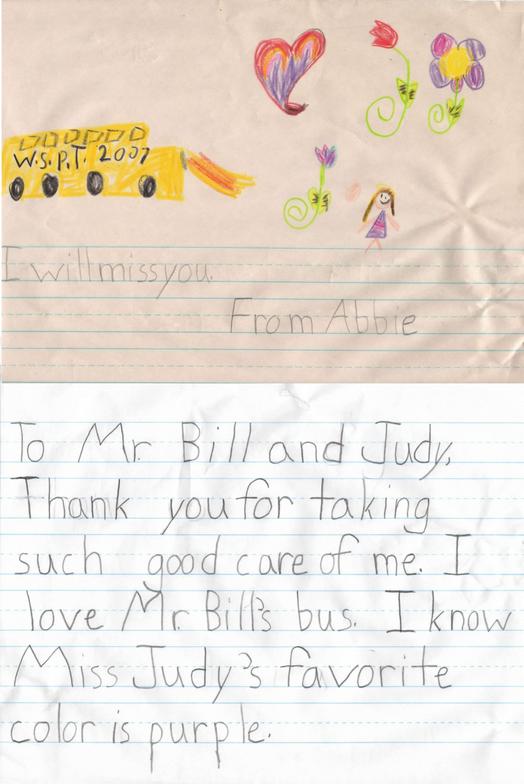 W.S.P.T. 2007
I will miss you.
From Abbie
To Mr. Bill and Judy,
Thank you for taking
such good care of me. I
love Mr. Bill's bus. I know
Miss Judy's favorite
color is purple.